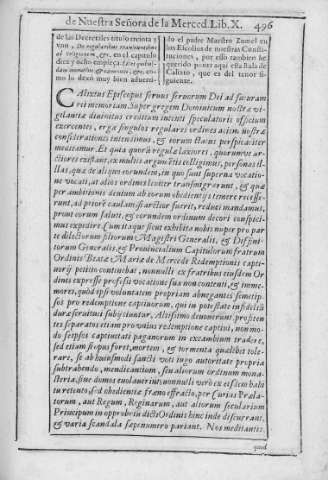 de Nuestra Señora de la Merced. Lib. X. 496
de las Decretales titulo treinta y
vno, De regularibus transeuntibus
ad religionem, &c. en el capitulo
diez y ocho empieça.
mo lo dexò muy bien aduerti-
do el padre Maestro Zumel en
los Escolios de nuestras Constitu-
ciones, por esso tambien he
querido poner aqui esta Bula de
Calixto, que es del tenor si-
guiente.
CAlixtus Episcopus seruus seruorum Dei ad futuram
rei memoriam. Super gregem Dominicum nostræ vi-
gilantiæ diuinitus creditum intenti speculatoris officium
exercentes, erga singulos regulares ordines aciem nostræ
considerationis intendimus, & eorum status perspicaciter
meditamur. Et quia quorum
ctiores existant, ex multis argumentis colligimus, personas il-
las, quæ de aliquo eorundem, in quo sunt superna vocatio-
ne vocati, ad alios ordines leuiter transmigrarunt, & quæ
per ambitionis dentum ab eorum obedientijs temere recesse-
runt, ad priorē caulam reduci mandamus,
prout eorum saluti, & eorundem ordinum decori conspici-
mus expedire. Cum itaque sicut exhibita nobis nuper pro par
te dilectorum filiorum Magistri Generalis, & Definito-
rum Generalis, & Prouincialium Capitulorum fratrum
Ordinis Beatæ Mariæ de Mercede Redemptionis capti-
uorū petitio continebat, nonnulli ex fratribus eiusdem Or-
dinis expresse professi vocatione sua non contenti, & imme-
mores, quod ipsi voluntatem propriam abnegantes semetip-
sos pro redemptione captiuorum, qui in potestate infidelū
duræ seruituti subijciuntur, Altissimo deuouerunt, profiten
tes separatos etiam pro vnius redemptione captiui, non mo-
do seipsos captiuitati paganorum in excambium tradere,
sed etiam si opus foret, mortem, & tormenta qualibet tole-
rare, se ab huiusmodi sancti voti iugo autoritate propria
subtrahendo, mendicantium, seu aliorum ordinum mona-
steria, siue domos euolauerint: nonnulli verò ex eisdem habi
tu retento, sed obedientiæ freno excusso, per Curias Præla-
torum, aut Regum, Reginarum, aut aliorum sæcularium
Principum in opprobrium dicti Ordinis hinc inde discurrant,
& varia scandala sæpenumero pariant. Nos meditantes,
quod